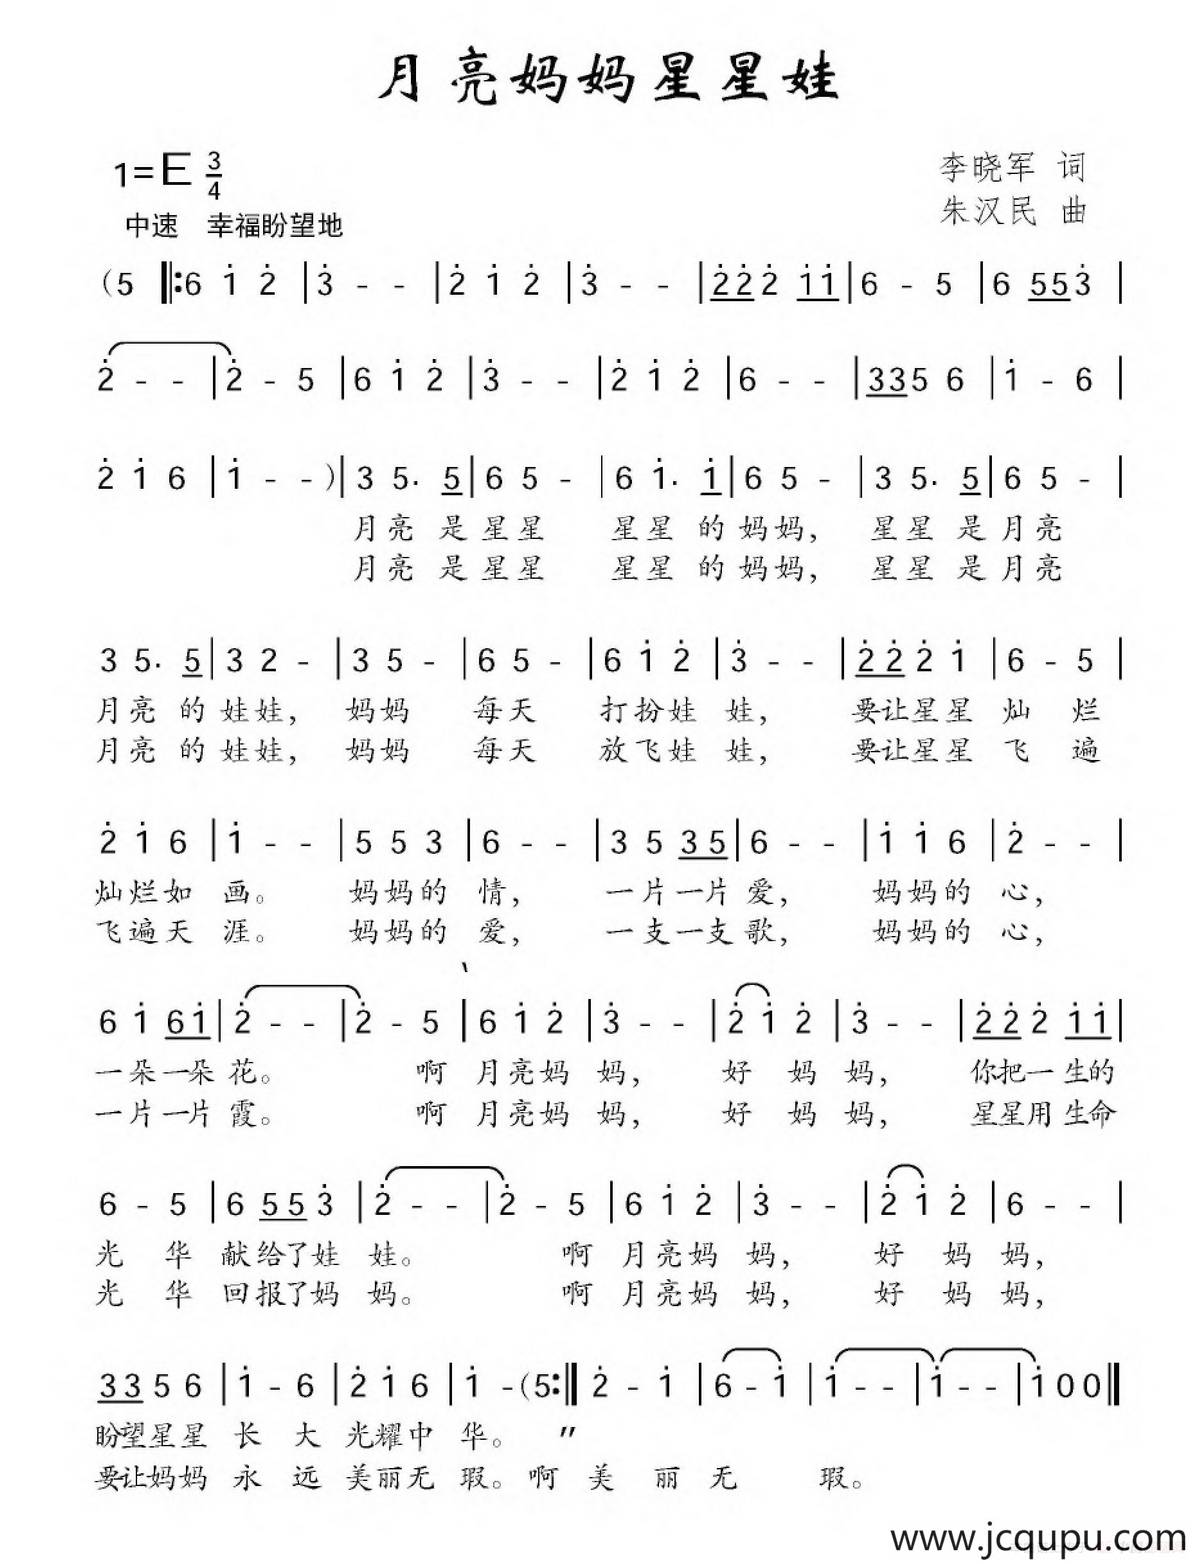 月亮妈妈星星娃
1=E 3/4
李晓军 词
中速 幸福盼望地
朱汉民 曲
(5 ‖:6 1̇ 2̇ |3̇ - - |2̇ 1̇ 2̇ |3̇ - - |2̇2̇2̇ 1̇1̇|6 - 5 |6 553̇ |
2̇ - - |2̇ - 5 |6 1̇ 2̇ |3̇ - - |2̇ 1̇ 2̇ |6 - - |335 6 |1̇ - 6 |
2̇ 1̇ 6 |1̇ - -)|3 5. 5|6 5 - |6 1̇. 1̇|6 5 - |3 5. 5|6 5 - |
月亮 是星星 星星 的妈妈, 星星 是月亮
月亮 是星星 星星 的妈妈, 星星 是月亮
3 5. 5|3 2 - |3 5 - |6 5 - |6 1̇ 2̇ |3̇ - - |2̇2̇2̇ 1̇ |6 - 5 |
月亮 的娃娃, 妈妈 每天 打扮娃 娃, 要让星星 灿 烂
月亮 的娃娃, 妈妈 每天 放飞娃 娃, 要让星星 飞 遍
2̇ 1̇ 6 |1̇ - - |5 5 3 |6 - - |3 5 35|6 - - |1̇ 1̇ 6 |2̇ - - |
灿烂如 画。 妈妈的 情, 一片一片 爱, 妈妈的 心,
飞遍天 涯。 妈妈的 爱, 一支一支 歌, 妈妈的 心,
6 1̇ 61̇|2̇ - - |2̇ - 5 |6 1̇ 2̇ |3̇ - - |2̇ 1̇ 2̇ |3̇ - - |2̇2̇2̇ 1̇1̇|
一朵一朵 花。 啊 月亮妈 妈, 好 妈 妈, 你把一生的
一片一片 霞。 啊 月亮妈 妈, 好 妈 妈, 星星用生命
6 - 5 |6 55 3̇ |2̇ - - |2̇ - 5 |6 1̇ 2̇ |3̇ - - |2̇ 1̇ 2̇ |6 - - |
光 华 献给了娃 娃。 啊 月亮妈 妈, 好 妈 妈,
光 华 回报了妈 妈。 啊 月亮妈 妈, 好 妈 妈,
335 6 |1̇ - 6 |2̇ 1̇ 6 |1̇ -(5:‖ 2̇ - 1̇ |6 - 1̇ |1̇ - - |1̇ - - |1̇ 0 0 ‖
盼望星星 长 大 光耀中 华。 〃
要让妈妈 永 远 美丽无 瑕。啊 美 丽 无 瑕。
www.jcqupu.com